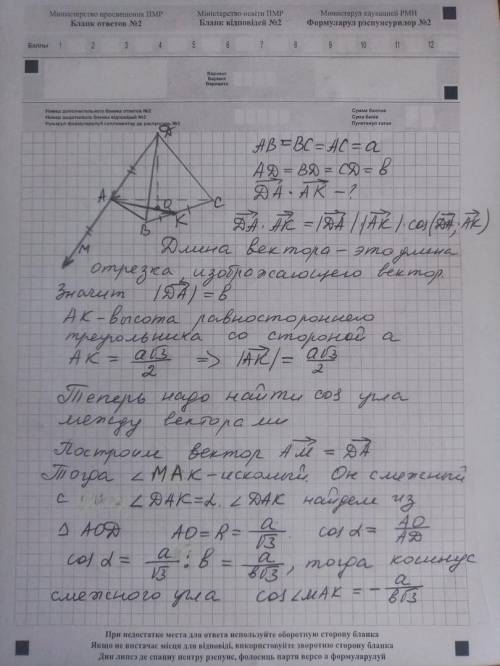 Министерство просвещения ПМР
Бланк ответов №2
Міністерство освіти ПМР
Бланк відповідей №2
Министерул ынвэцэмынтулуй РМН
Формуларул рэспунсурилор №2
Баллы 1 2 3 4 5 6 7 8 9 10 11 12
Вариант
Варіант
Варианта
Номер дополнительного бланка ответов №2
Номер додаткового бланка відповідей №2
Сумма баллов
Сума балів
Пунктажул тотал
D
A
O
C
B
K
M
AB = BC = AC = a
AD = BD = CD = b
DA · AK - ?
DA · AK = |DA|·|AK|·cos(DA, AK)
Длина вектора – это длина
отрезка, изображающего вектор.
Значит |DA| = b
AK - высота равностороннего
треугольника со стороной a
AK = a√3/2 => |AK| = a√3/2
Теперь надо найти cos угла
между векторами
Построим вектор AM = DA
Тогда ∠MAK - искомый. Он смежный
с ∠DAK = α. ∠DAK найдем из
Δ AOD AO = R = a/√3 cos α = AO/AD
cos α = a/√3 : b = a/b√3, тогда косинус
смежного угла cos∠MAK = - a/b√3
При недостатке места для ответа используйте оборотную сторону бланка
Якщо не вистачає місця для відповіді, використовуйте зворотню сторону бланка
Дин липсэ де спациу пентру рэспунс, фолосиць партя версо а формуларулуй